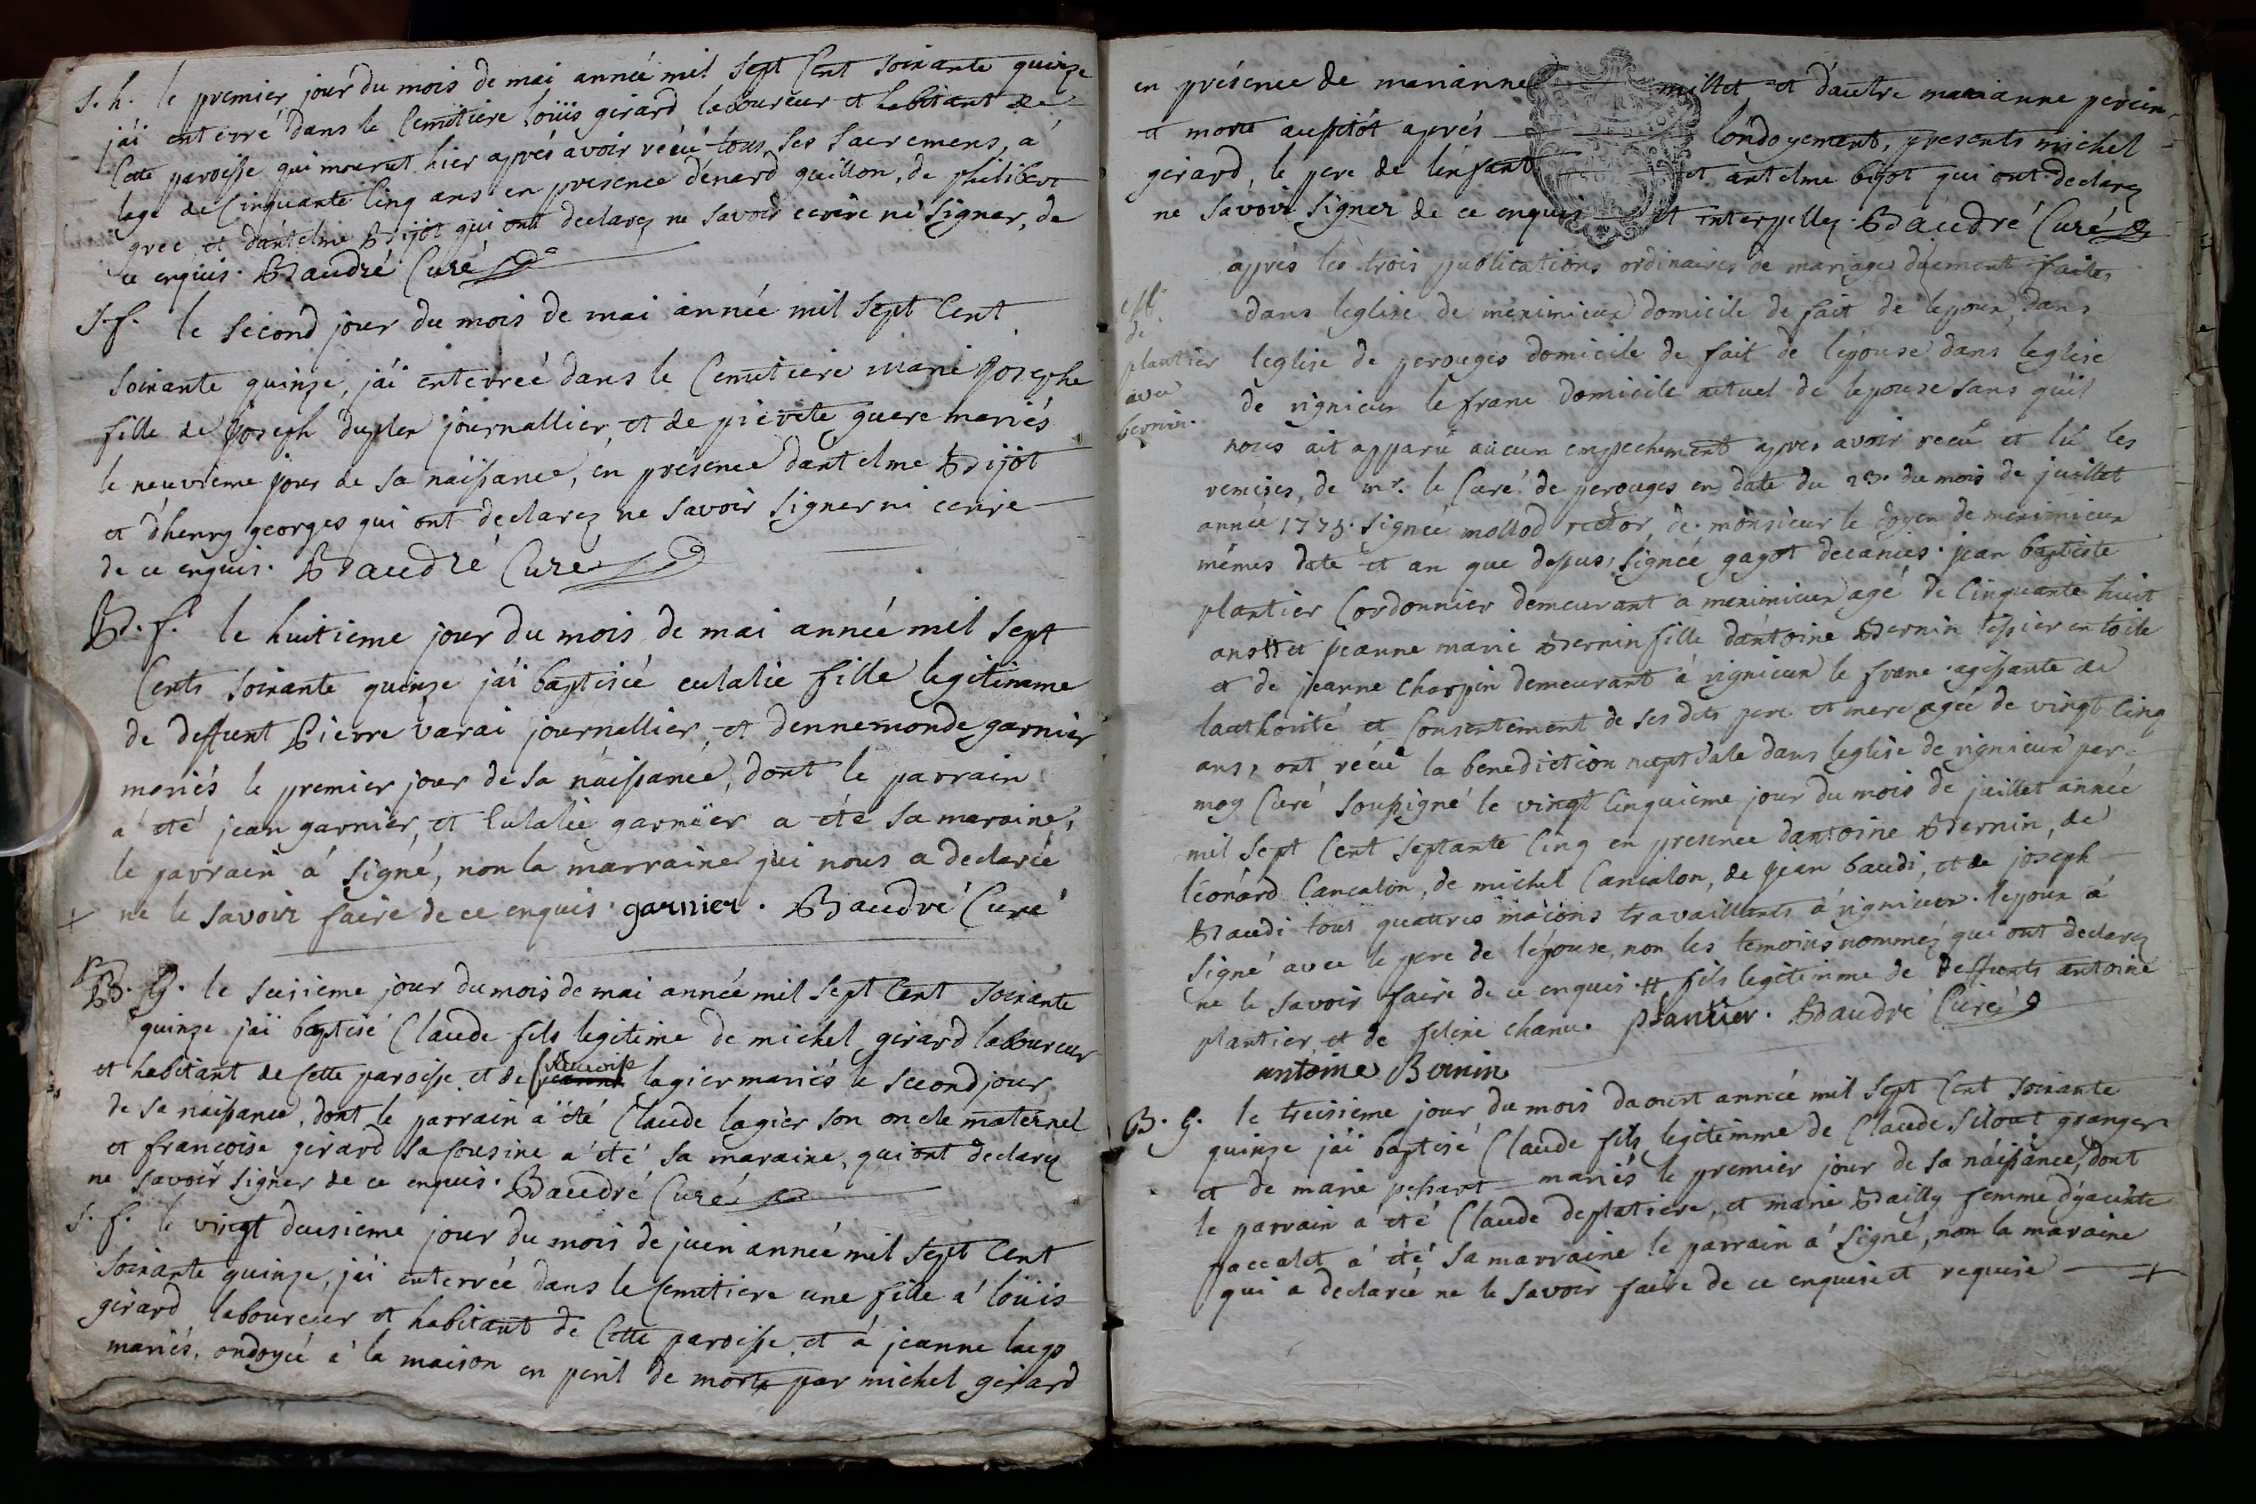 S. h. le premier jour du mois de mai année mil sept Cent soixante quinze
j'ai enterré dans le Cemitiere loüis girard laboureur et habitant de
Cette paroisse qui mourut hier aprés avoir récü tous ses sacremens, a
lage de Cinquante Cinq ans en presence d'énard guillon, de philibert
gree et d'antelme Bijot qui ont declarez ne savoir ecrire ne signer, de
ce enquis. Baudré Curé
S. f. le second jour du mois de mai année mil sept Cent
soixante quinze, j'ai enterreé dans le Cemitiere marie Josephe
fille de Joseph duplex journallier, et de pierrete guare mariés
le neuvieme jour de sa naissance, en presence d'antelme Bijot
et d'henry georges qui ont declarez ne savoir signer ni ecrire
de ce enquis. Baudré Curé
B. f. le huitieme jour du mois de mai année mil sept
Cents soixante quinze j'ai baptisée eulalie fille legitimme
de deffunt Pierre varai journallier, et dennemonde garnier
mariés le premier jour de sa naissance, dont le parrain
a été jean garnier, et Eulalie garnier a été sa maraine,
le parrain a signé, non la marraine qui nous a declarée
ne le savoir faire de ce enquis. garnier. Baudré Curé
B. G. le seisieme jour du mois de mai année mil sept Cent soixante
quinze j'ai baptisé Claude fils legitime de michel girard laboureur
et habitant de Cette paroisse, et de francoise lagier mariés le second jour
de sa naissance, dont le parrain a été Claude lagier son oncle maternel
et francoise girard sa Cousine a été sa maraine, qui ont declarez
ne savoir signer de ce enquis. Baudré Curé
S. f. le vingt deusieme jour du mois de juin année mil sept Cent
soixante quinze, j'ai enterrée dans le Cemitiere une fille a loüis
girard laboureur et habitant de Cette paroisse, et a jeanne
mariés, ondoyée a la maison en peril de mort par michel girard
en présence de marianne millet et d'autre marianne
et morte aussitôt aprés londoyement, presents michel
girard, le pere de lenfant et antelme bijot qui ont declarez
ne savoir signer de ce enquis et interpellez. Baudré Curé
aprés les trois publications ordinaires de mariages duement faites
dans leglise de meximieux domicile de fait de lepoux, dans
leglise de perouges domicile de fait de lépouse dans leglise
de rignieux le franc domicile actuel de lepouse sans quil
nous ait apparu aucun empechement apres avoir recu et lu les
remises, de mr. le Curé de perouges en date du 23. du mois de juillet
année 1775. signée mollod rector, de monsieur le doyen de meximieux
mêmes date et an que dessus, signée gagot decanus. jean baptiste
plantier Cordonnier demeurant a meximieux agé de Cinquante huit
ans # et jeanne marie Bernin fille d'antoine Bernin tissier en toile
et de jeanne charpin demeurant a rignieux le franc agissante de
lauthorité et Consentement de ses dits pere et mere agée de vingt Cinq
ans, ont récu la benediction nuptiale dans leglise de rignieux par
moy Curé soussigné le vingt Cinquieme jour du mois de juillet année
mil sept Cent septante Cinq en presence dantoine Bernin, de
léonard Cancalon, de michel Cancalon, de jean baudi, et de joseph
Baudi tous quattres maçons travaillants a rignieux. lepoux a
signé avec le pere de lépouse, non les temoins nommez qui ont declarez
ne le savoir faire de ce enquis. # fils legitimme de deffunts antoine
plantier et de feline chanu. plantier. Baudré Curé
antoine Bernin
eff. de
plantier
avec
bernin.
B. G. le treisieme jour du mois daoust année mil sept Cent soixante
quinze j'ai baptisé Claude fils legitimme de Claude granger
et de marie mariés le premier jour de sa naissance, dont
le parrain a été Claude deplatiere, et marie Bailly femme d'yacinte
paccalet a été sa marraine le parrain a signé, non la maraine
qui a declarée ne le savoir faire de ce enquise et requise